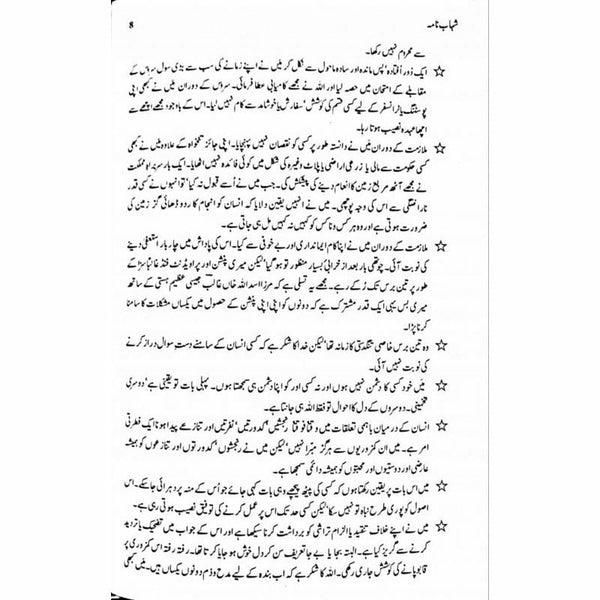 شہاب نامہ 8
سے محروم نہیں رکھا۔
☆ ایک دُور اُفتادہ، پس ماندہ اور سادہ ماحول سے نکل کر میں نے اپنے زمانے کی سب سے بڑی سول سروس کے
مقابلے کے امتحان میں حصہ لیا اور اللہ نے مجھے کامیابی عطا فرمائی۔ سروس کے دوران میں نے کبھی اپنی
پوسٹنگ یا ٹرانسفر کے لیے کسی قسم کی کوشش، سفارش یا خوشامد سے کام نہیں لیا۔ اس کے باوجود مجھے اچھے سے
اچھا عہدہ نصیب ہوتا رہا۔
☆ ملازمت کے دوران میں نے دانستہ طور پر کسی کو نقصان نہیں پہنچایا۔ اپنی جائز تنخواہ کے علاوہ میں نے کبھی
کسی حکومت سے مالی یا زرعی اراضی یا پلاٹ وغیرہ کی شکل میں کوئی فائدہ نہیں اٹھایا۔ ایک بار سربراہِ مملکت
نے مجھے آٹھ مربع زمین کا انعام دینے کی پیشکش کی۔ جب میں نے اُسے قبول نہ کیا، تو انہوں نے کسی قدر
ناراضگی سے اس کی وجہ پوچھی۔ میں نے انہیں یقین دلایا کہ انسان کو انجام کار دو ڈھائی گز زمین کی
ضرورت ہوتی ہے اور وہ ہر کس و ناکس کو کہیں نہ کہیں مل ہی جاتی ہے۔
☆ ملازمت کے دوران میں نے اپنا کام ایمانداری اور بے خوفی سے کیا۔ اس کی پاداش میں چار بار استعفیٰ دینے
کی نوبت آئی۔ چوتھی بار بعد از خرابیٔ بسیار منظور تو ہو گیا، لیکن میری پنشن اور پراویڈنٹ فنڈ غالباً سزا کے
طور پر تین برس تک رُکے رہے۔ مجھے یہ تسلی ہے کہ مرزا اسد اللہ خاں غالب جیسی عظیم ہستی کے ساتھ
میری بس یہی ایک قدر مشترک ہے کہ دونوں کو اپنی اپنی پنشن کے حصول میں یکساں مشکلات کا سامنا
کرنا پڑا۔
☆ وہ تین برس خاصی تنگدستی کا زمانہ تھا، لیکن خدا کا شکر ہے کہ کسی انسان کے سامنے دستِ سوال دراز کرنے
کی نوبت نہیں آئی۔
☆ میں خود کسی کا دشمن نہیں ہوں اور نہ کسی اور کو اپنا دشمن ہی سمجھتا ہوں۔ پہلی بات تو یقینی ہے، دوسری
تخمینی۔ دوسروں کے دل کا احوال تو فقط اللہ ہی جانتا ہے۔
☆ انسان کے درمیان باہمی تعلقات میں وقتاً فوقتاً رنجشیں، کدورتیں، نفرتیں اور تنازعے پیدا ہونا ایک فطرتی
امر ہے۔ میں ان کمزوریوں سے ہرگز مبرّا نہیں، لیکن میں نے رنجشوں، کدورتوں اور تنازعوں کو ہمیشہ
عارضی اور دوستیوں اور محبتوں کو ہمیشہ دائمی سمجھا ہے۔
☆ میں اس بات پر یقین رکھتا ہوں کہ کسی کی پیٹھ پیچھے وہی بات کہی جائے جو اُس کے منہ پر دہرائی جا سکے۔ اس
اصول کو پوری طرح نباہ تو نہیں سکا، لیکن کسی حد تک اس پر عمل کرنے کی توفیق نصیب ہوتی رہی ہے۔
☆ میں نے اپنے خلاف تنقید یا الزام تراشی کو برداشت کرنا سیکھا ہے اور اس کے جواب میں تضحیک یا تردید
کرنے سے گریز کیا ہے۔ البتہ بجا یا بے جا تعریف سن کر دل خوش ہو جایا کرتا تھا۔ رفتہ رفتہ اس کمزوری پر
قابو پانے کی کوشش جاری رکھی۔ اللہ کا شکر ہے کہ اب بندہ کے لیے مدح و ذم دونوں یکساں ہیں۔ میں کبھی